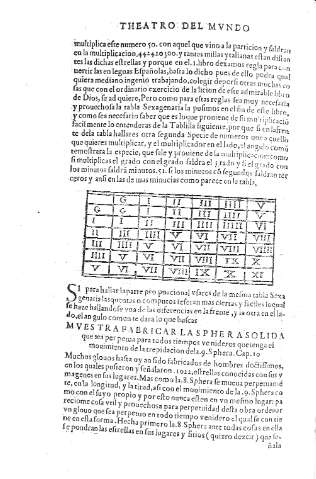 THEATRO DEL MVNDO
multiplica este numero 50. con aquel que vino a la particion y saldran
en la multiplicacion, 44420100. y tantas millas ytalianas estan distan
tes las dichas estrellas y porque en el 1. libro dexamos regla para con
uertirlas en leguas Españolas, basta lo dicho pues de ello podra qual
quiera mediano ingenio trabajando, colegir
sas que con el ordinario exercicio de la licion de este admirable libro
de Dios, se adquiere, Pero como para estas reglas sea muy necesaria
y prouechosa la tabla Sexagenaria la pusimos en el dia de este libro,
y como sea necesario saber que es lo que prouiene de su multiplicació
facilmente lo entenderas de la Tablilla siguiente, por que si en la fren
te dela tabla hallares otra segunda Specie de numeros que aquello
que quieres multiplicar, y el multiplicador en el lado, el angulo comú
te mostrara la especie, que sale y prouiene de la multiplicacion: como
si multiplicas el grado con el grado saldra el grado y si el grado con
los minutos saldrá minutos, si los minutos có segundos saldran ter
ceros y ansi en las de mas minucias como parece en la tabla,
G I II III IIII V
G
I
II
III
IIII
V VI VII VIII IX X XI
SI para hallar la parte proporcional vsares de la mesma tabla Sexa
genaria las quentas o computos te seran mas ciertas y faciles lo qual
se hace hallandose vna de las diferencias en la frente, y la otra en el la-
do, el angulo comun te dara lo que buscas
MVESTRA FABRICAR LA SPHERA SOLIDA
que sea perpetua para todos tiempos venideros que tenga el
mouimiento de la trepidacion de la .9. Sphera. Cap. 10
Muchos globos hasta oy an sido fabricados de hombres doctissimos,
en los quales pusieron y señalaron .1022. estrellas conocidas con sus y
magenes en sus lugares. Mas como la .8. Sphera se mueua perpetuamé
te, en la longitud, y latitud, asi con el mouimiento de la .9. Sphera co
mo con el suyo propio y por esto nunca esten en vn mesmo lugar: pa
reciome cosa vtil y prouechosa para perpetuidad desta obra ordenar
vn glouo que sea perpetuo en todo tiempo venidero el qual con se tie
ne en esta forma. Hecha primero la .8. Sphera ante todas cosas en ella
se pondran las estrellas en sus lugares y Sitios (quiero dezir) que se-
ñala